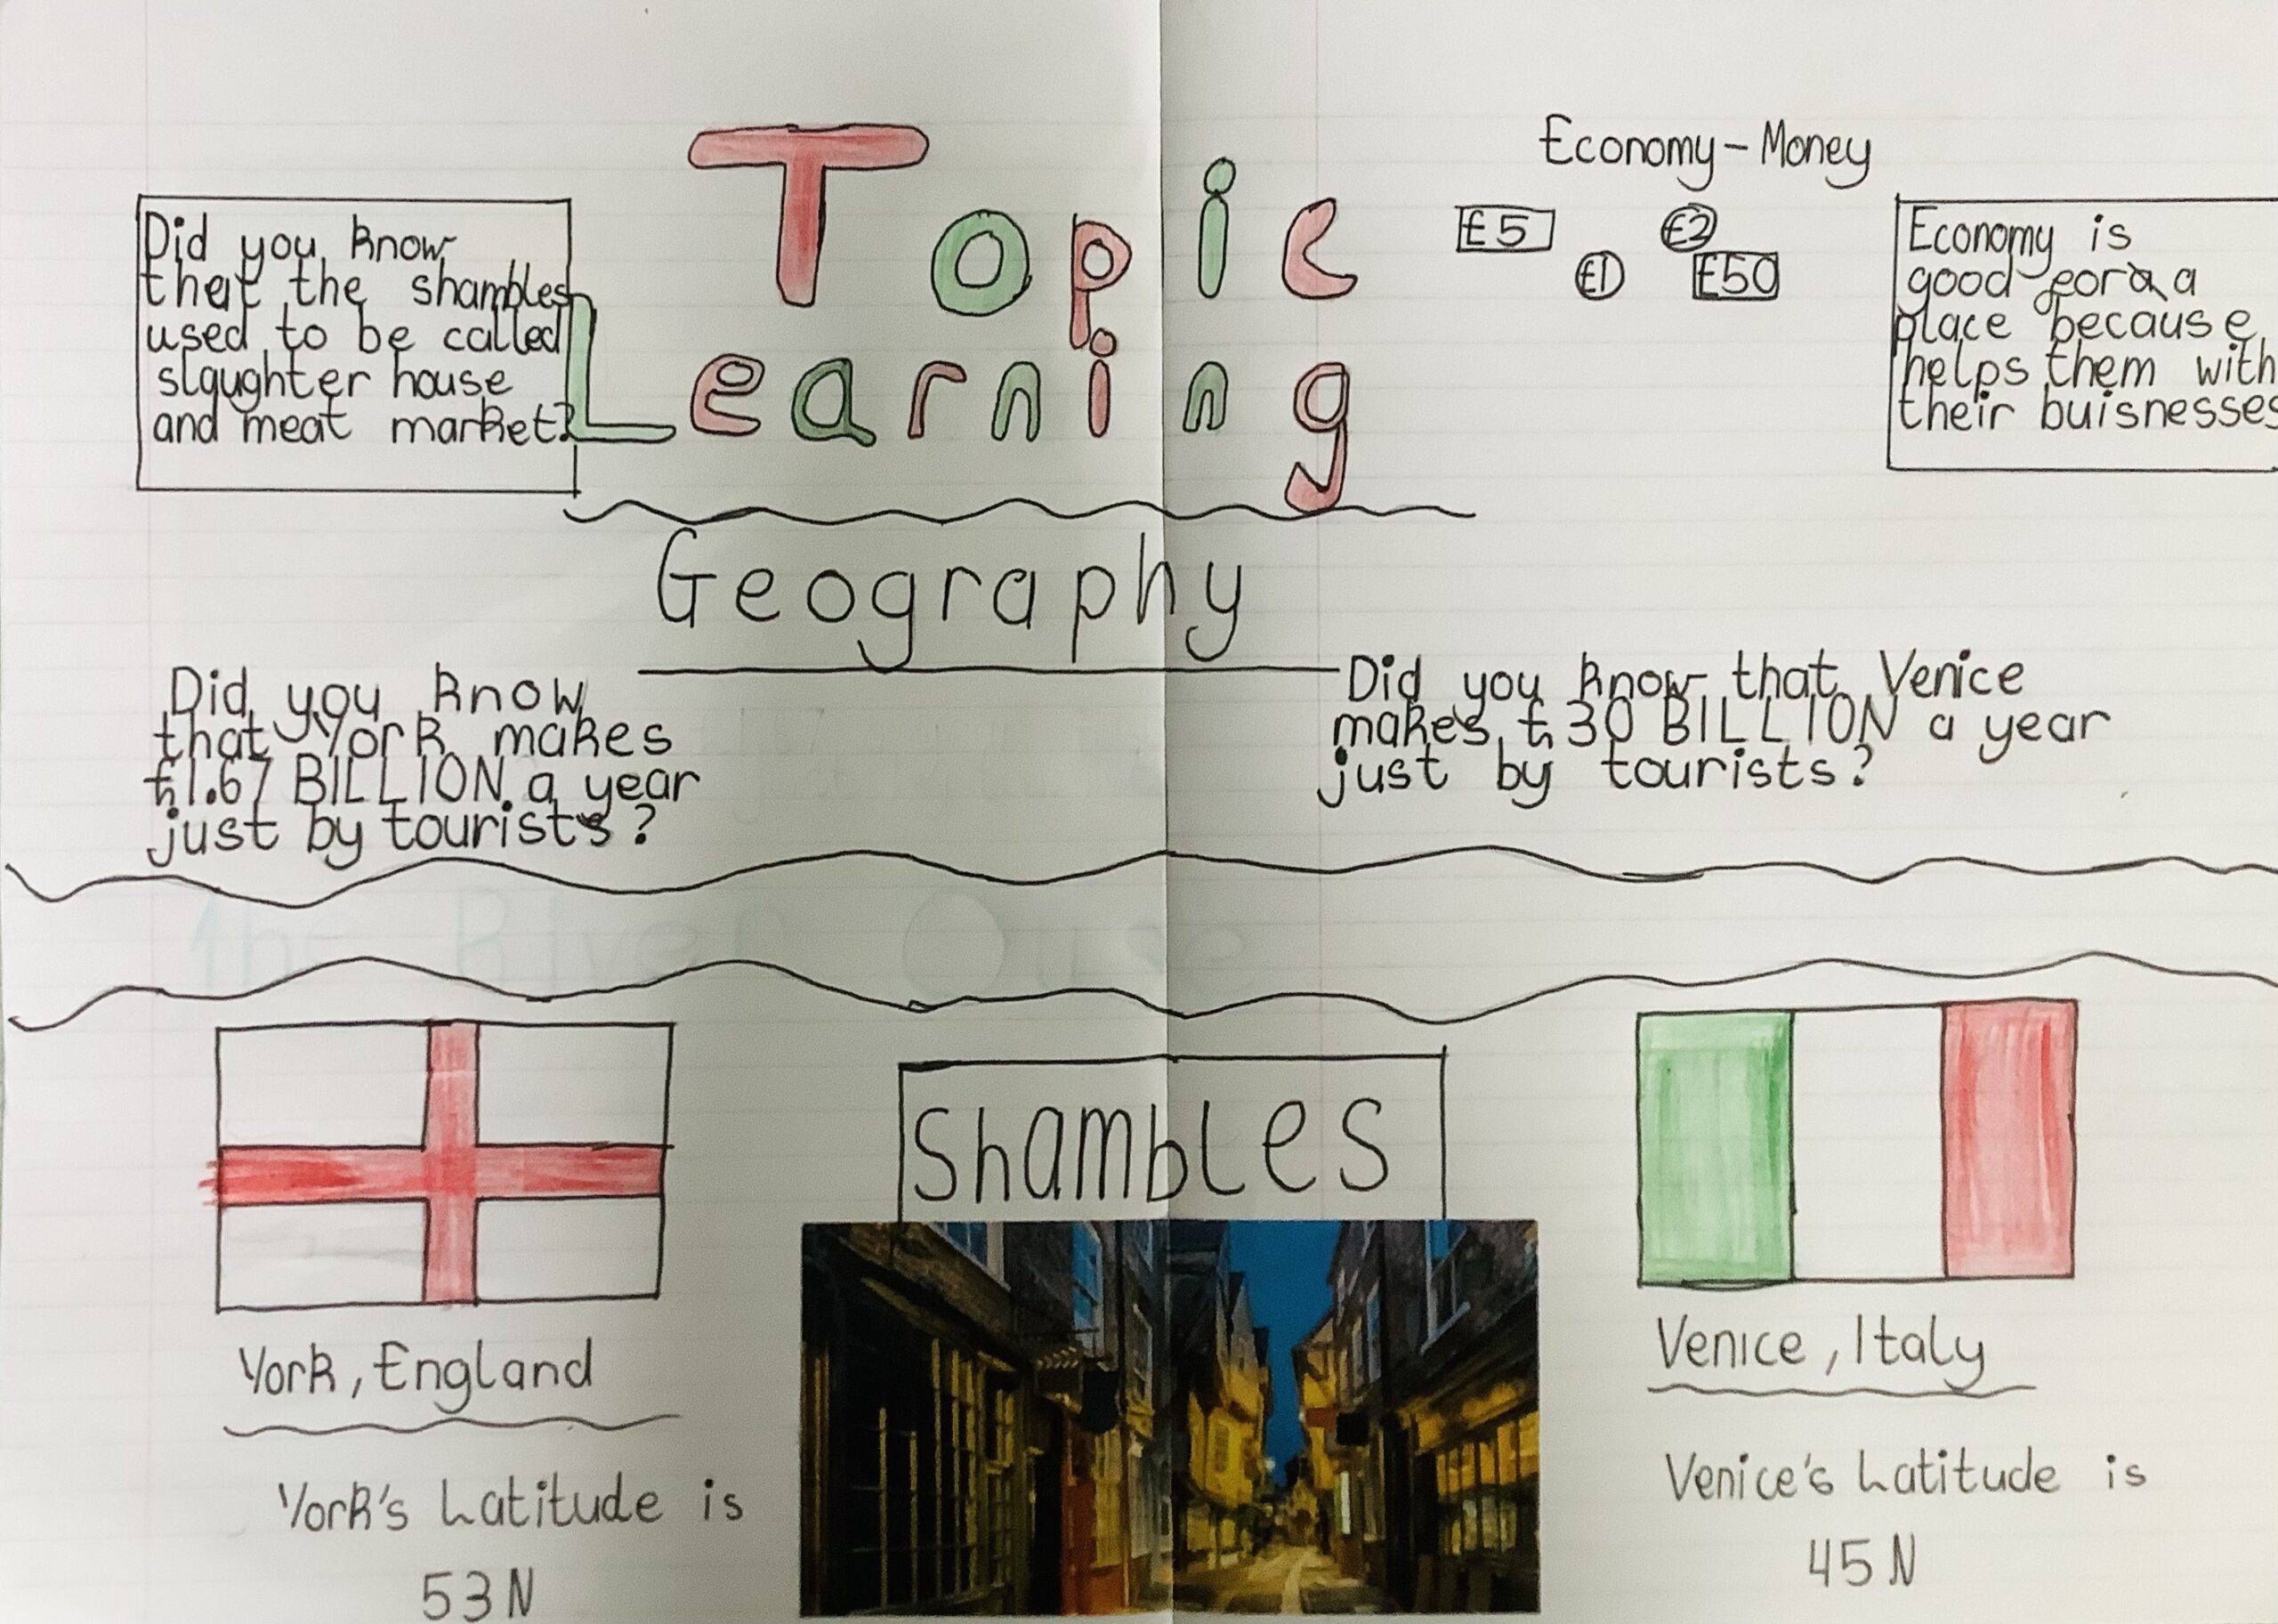 Topic
Learning
Economy - Money
£5
£2
£1
£50
Did you know
that the shambles
used to be called
slaughter house
and meat market?
Economy is
good for a a
place because
helps them with
their buisnesses
Geography
Did you know
that York makes
£1.67 BILLION a year
just by tourists?
Did you know that Venice
makes £30 BILLION a year
just by tourists?
The River Ouse
Shambles
York, England
York's Latitude is
53N
Venice, Italy
Venice's Latitude is
45N